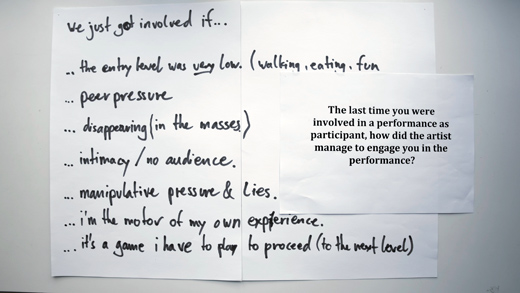 we just got involved if...
... the entry level was very low. (walking, eating, fun
... peer pressure
... disappearing (in the masses)
... intimacy / no audience.
... manipulative pressure & lies.
... i'm the motor of my own experience.
... it's a game i have to play to proceed (to the next level)
The last time you were
involved in a performance as
participant, how did the artist
manage to engage you in the
performance?